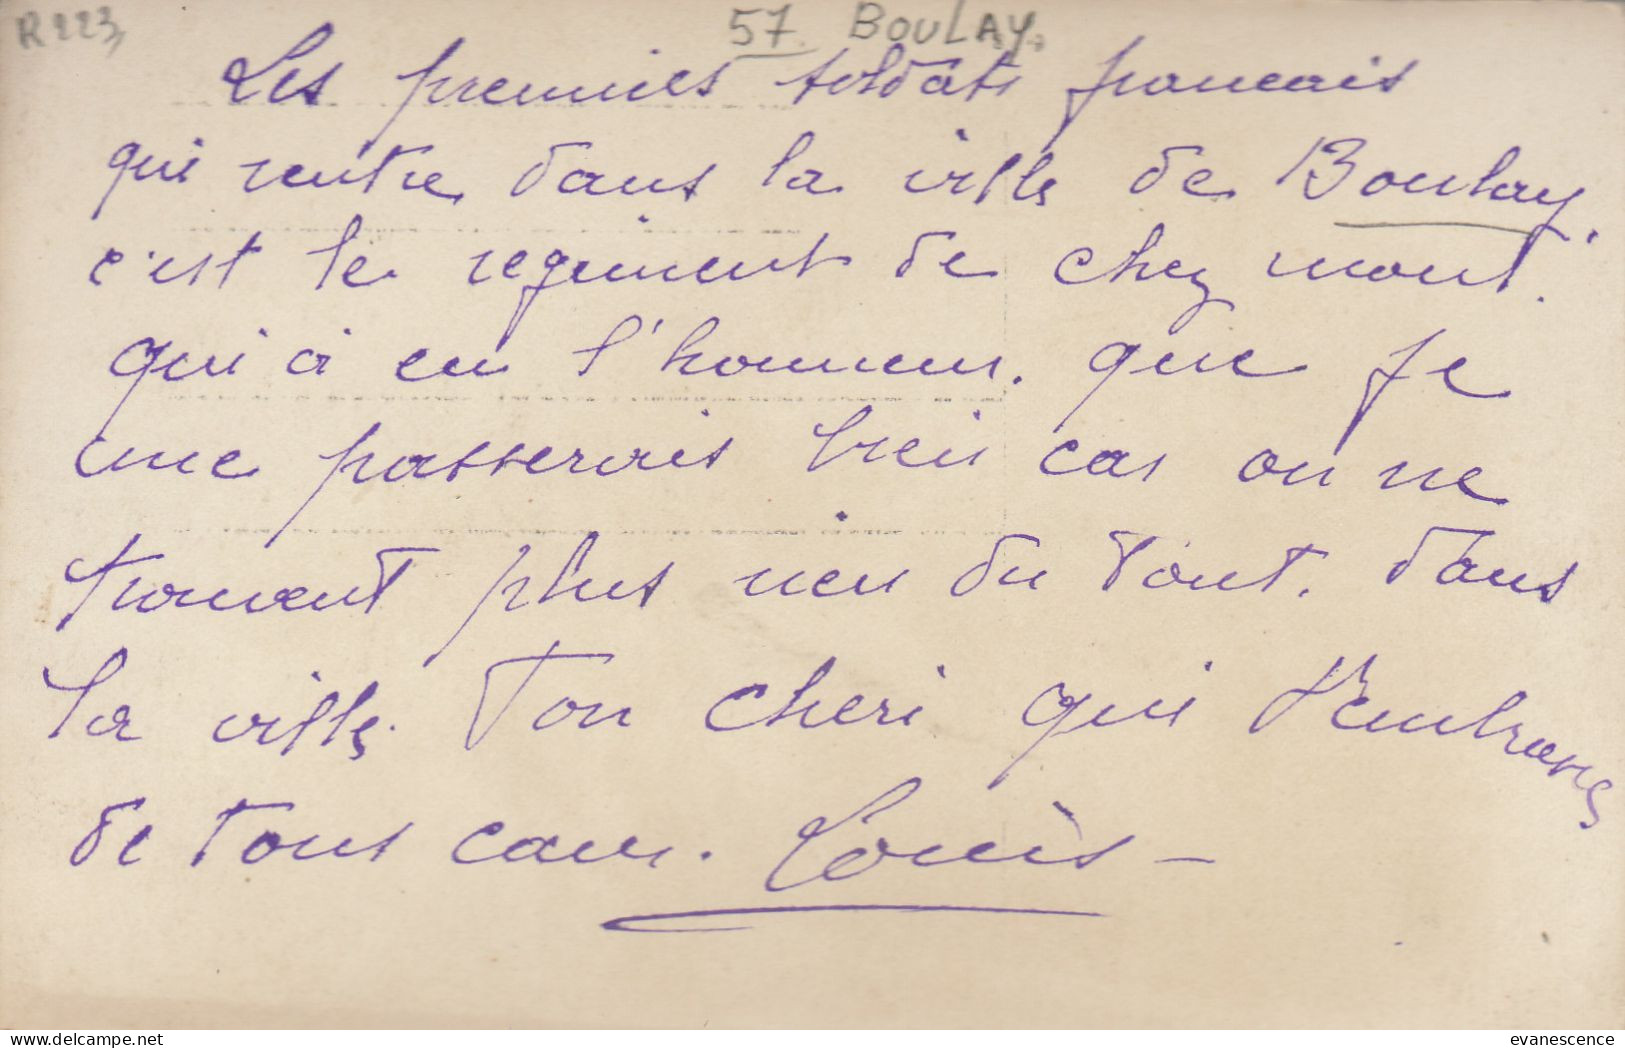 R223,
57. BOULAY.
Les premiers soldats francais
qui rentre dans la ville de Boulay.
c'est le regiment de chez mout.
qui à eu l'honneur. que je
me passerais bien car on ne
trouvent plus rien du tout. dans
la ville. Ton cheri qui t'embrasse
de tous cœur. Louis -
delcampe.net
evanescence